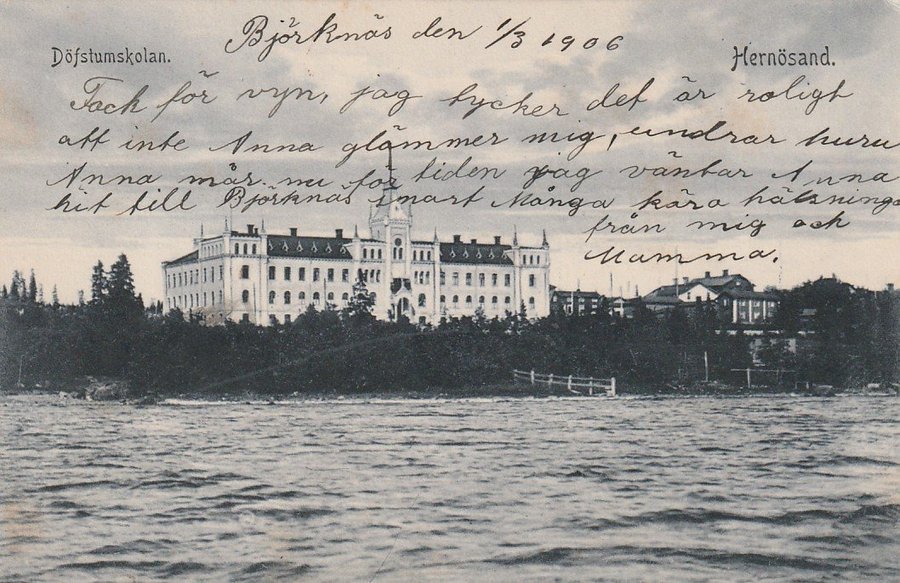 Björknäs den 1/3 1906
Döfstumskolan.
Hernösand.
Tack för vyn, jag tycker det är roligt
att inte Anna glämmer mig, undrar huru
Anna mår nu för tiden jag väntar Anna
hit till Björknäs snart Många kära hälsningar
från mig och
Mamma.